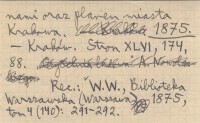 nami oraz planem miasta
Krakowa. Kraków 1875.
— Kraków. Stron XLVI, 174,
88.
Rec.: W.W., Biblioteka
Warszawska (Warszawa) 1875,
tom 4 (140): 291-292.